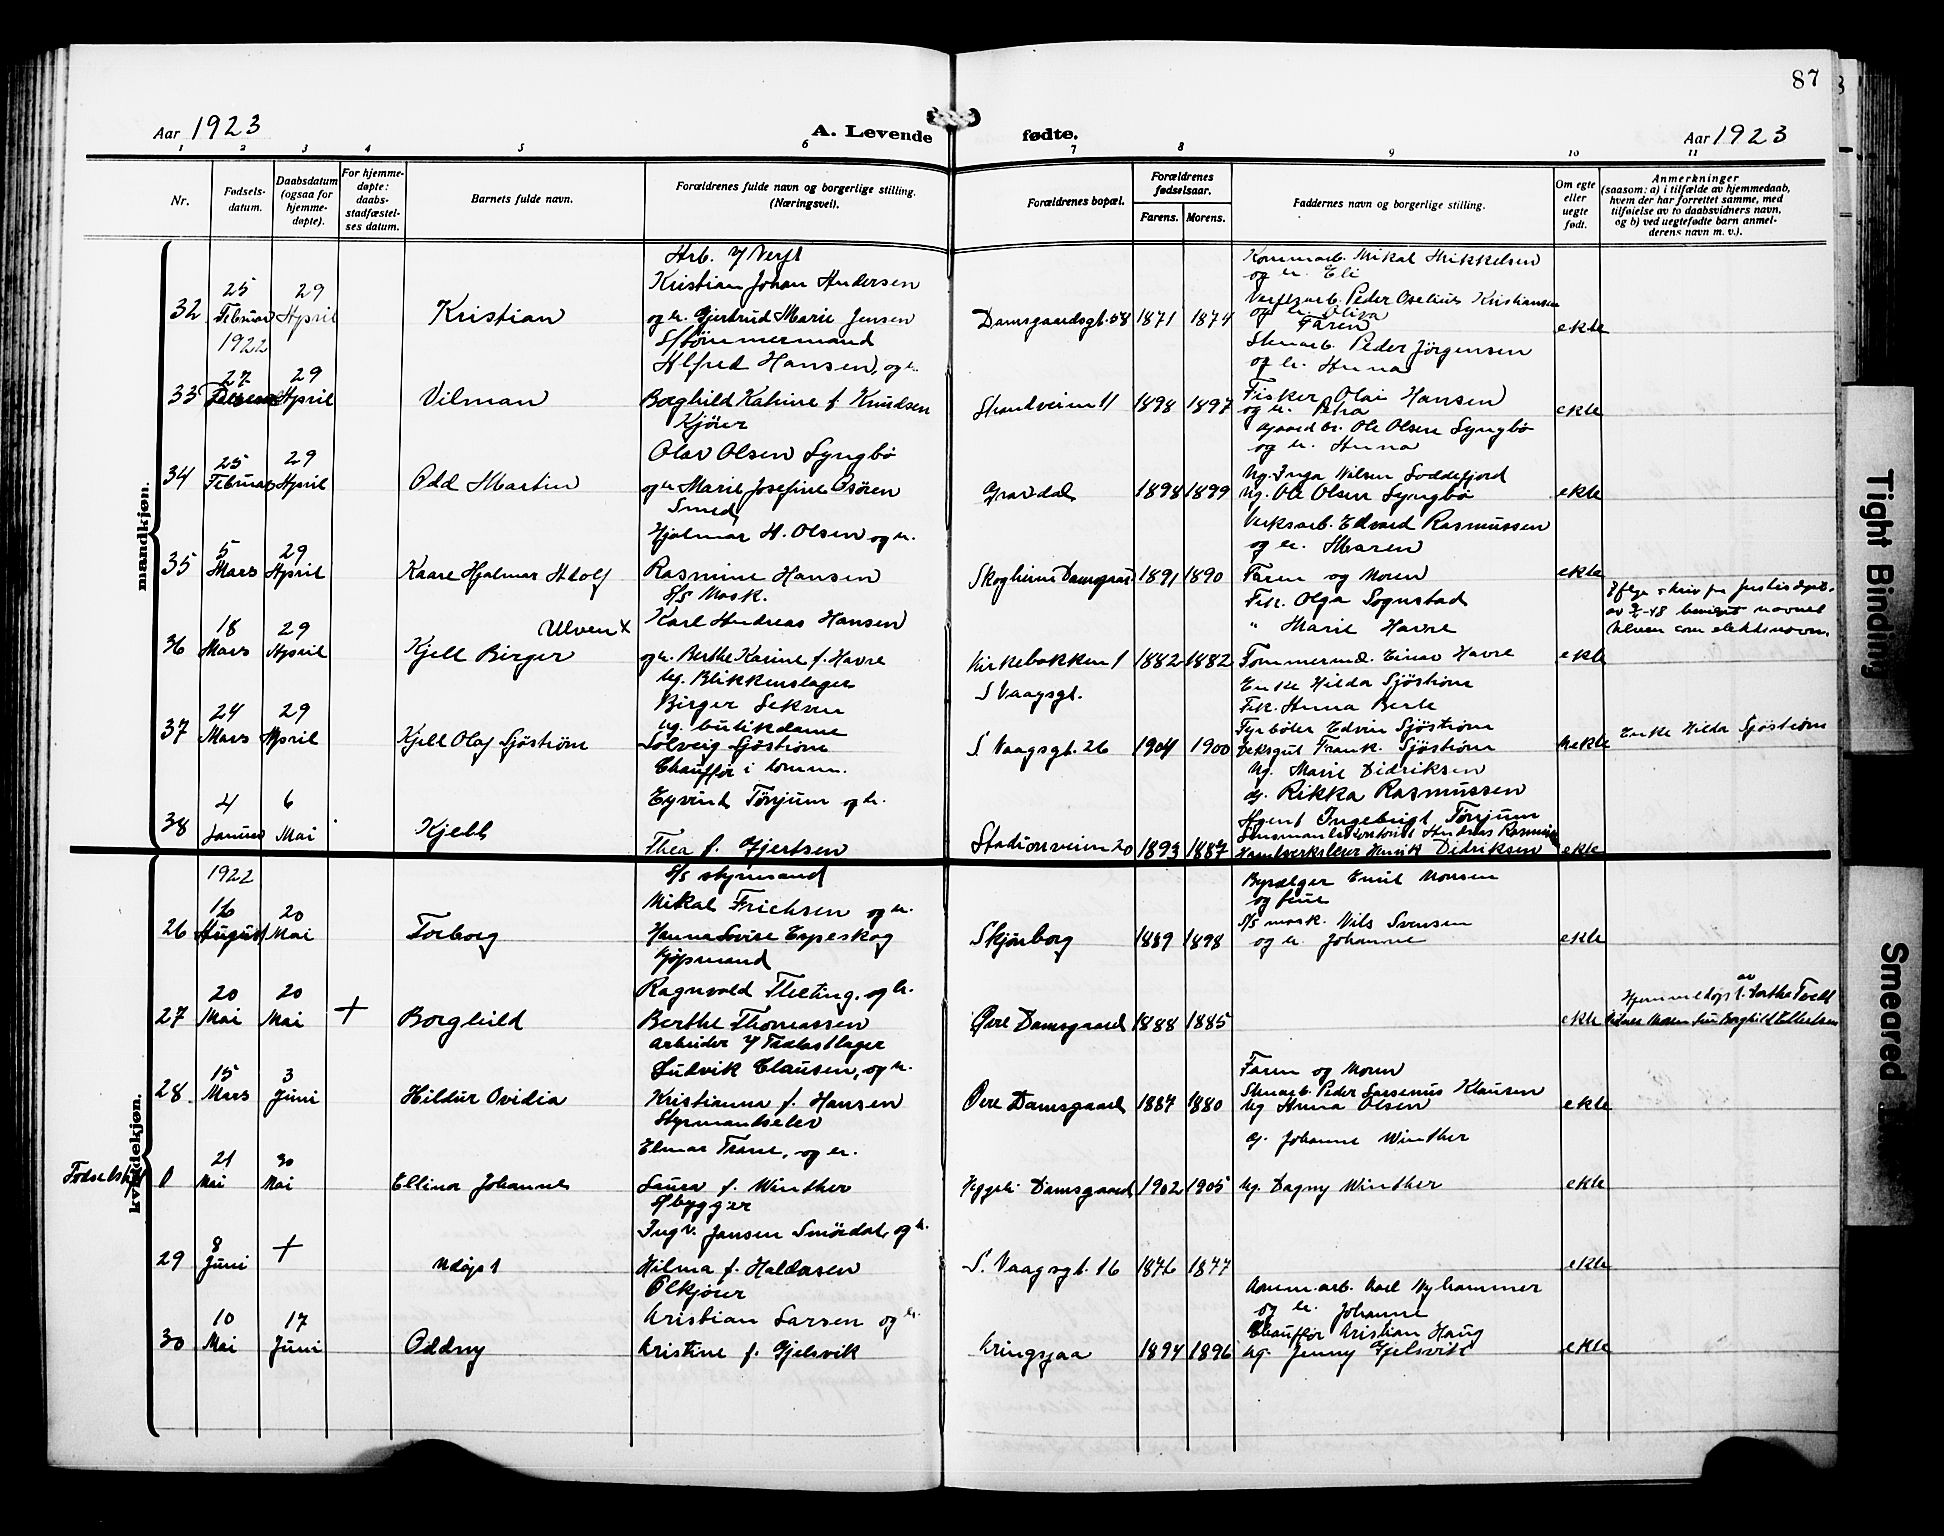 87
Aar 1923
A. Levende fødte.
Aar 1923
1 2 3 4 5 6 7 8 9 10 11
Nr.
Fødsels-
datum.
Daabsdatum
(ogsaa for
hjemme-
døpte).
For hjemme-
døpte:
daabs-
stadfæstel-
ses datum.
Barnets fulde navn.
Forældrenes fulde navn og borgerlige stilling.
(Næringsvei).
Forældrenes bopæl.
Forældrenes
fødselsaar.
Farens. Morens.
Faddernes navn og borgerlige stilling.
Om egte
eller
uegte
født.
Anmerkninger
(saasom: a) i tilfælde av hjemmedaab,
hvem der har forrettet samme, med
tilføielse av to daabsvidners navn,
og b) ved uegtefødte barn anmel-
derens navn m. v.).
mandkjøn.
32
25
Februar
1922
29
April
Kristian
Arb. v/ Verft
Kristian Johan Andersen
og h. Gjertrud Marie Jensen
Damsgaardsgt. 58
1871 1874
Kommarb. Mikal Mikkelsen
og h. Eli
Verftsarb. Peder Oselius Kristiansen
og h. Oliva
Faren
ekte
33
27
29
April
Vilman
S/tømmermand
Alfred Hansen, og h.
Borghild Katrine f. Knudsen
Strandveien 11
1898 1897
Stenarb. Peder Jörgensen
og h. Anna
Fisker Olai Hansen
og h. Petra
ekte
34
25
Februar
29
April
Odd Martin
Kjörer
Olav Olsen Lyngbö
og h. Marie Josefine Osören
Gravdal
1898 1899
Gaardbr. Ole Olsen Lyngbö
og h. Anna
Ug. Inga Nilsen Loddefjord
Ug. Ole Olsen Lyngbö
ekte
35
5
Mars
29
April
Kaare Hjalmar Adolf
Smed
Hjalmar H. Olsen og h.
Rasmine Hansen
Skogheim Damsgaard
1891 1890
Verksarb. Edvard Rasmussen
og h. Maren
Faren og Moren
ekte
36
18
Mars
29
April
Ulven x
Kjell Birger
S/S Mask.
Karl Andreas Hansen
og h. Berthe Karine f. Havre
Kirkebakken 1
S Vaagsgt.
1882 1882
Frk. Olga Sognstad
" Marie Havre
Tømmermd. Einar Havre
ekte
Ifölge skriv fra Justisdept.
av -48 bevilget navnet
Ulven som slektsnavn.
37
24
Mars
29
April
Kjell Olaf Sjöström
Ug. Blikkenslager
Birger
Ug. butikdame
Solveig Sjöström
S Vaagsgt. 26
1904 1900
Enke Hilda Sjöström
Frk. Anna Berle
Fyrböter Edvin Sjöström
Dæksgut Frank. Sjöström
Uekte
Enke Hilda Sjöström
38
4
Januar
6
Mai
Kjell
Chauffør i komm.
Eyvind Tönjum og h.
Thea f. Gjertsen
Stadionveien 20
1893 1887
Ug. Marie Didriksen
do. Rikka Rasmussen
Agent Ingebrigt Tönjum
Haandverkslærer Henrik Didriksen
ekte
kvindekjøn.
1922
26
16
August
20
Mai
Torborg
S/S styrmand
Mikal Frichsen og h.
Hanna Lovise Espeskog
Skjönborg
1889 1898
Bysælger Emil Monsen
og frue
S/S mask. Nils Svensen
og h. Johanne
ekte
27
20
Mai
20
Mai
+
Borghild
Kjøpmand
Ragnvald Fletting, og h.
Berthe Thomassen
Övre Damsgaard
1888 1885
ekte
28
15
Mars
3
Juni
Hildur Ovidia
Arbeider v/ Trælastlager
Ludvik Clausen, og h.
Kristianna f. Hansen
Övre Damsgaard
1887 1880
Faren og Moren
Stenarb. Peder Klausen
Ug Anna Olsen
ekte
Fødselstift 0
21
Mai
30
Mai
Ellinor Johanne
Styrmandselev
Elmar Trane, og h.
Laura f. Winther
Damsgaard
1902 1905
do. Johanne Winther
Ug. Dagny Winther
ekte
29
8
Juni
+
Udöpt
S/bygger
Ingv. Jansen Smördal, og h.
Hilma f. Haldorsen
S. Vaagsgt. 16
1876 1877
ekte
30
10
Mai
17
Juni
Oddny
Ølkjører
Kristian Larsen og h.
Kristine f. Gjelsvik
Kringsjaa
1894 1896
Kommarb. Karl Nyhammer
og h. Johanne
Chauffør Kristian Haug
Ug. Jenny Gjelsvik
ekte
Tight Binding
Smeared